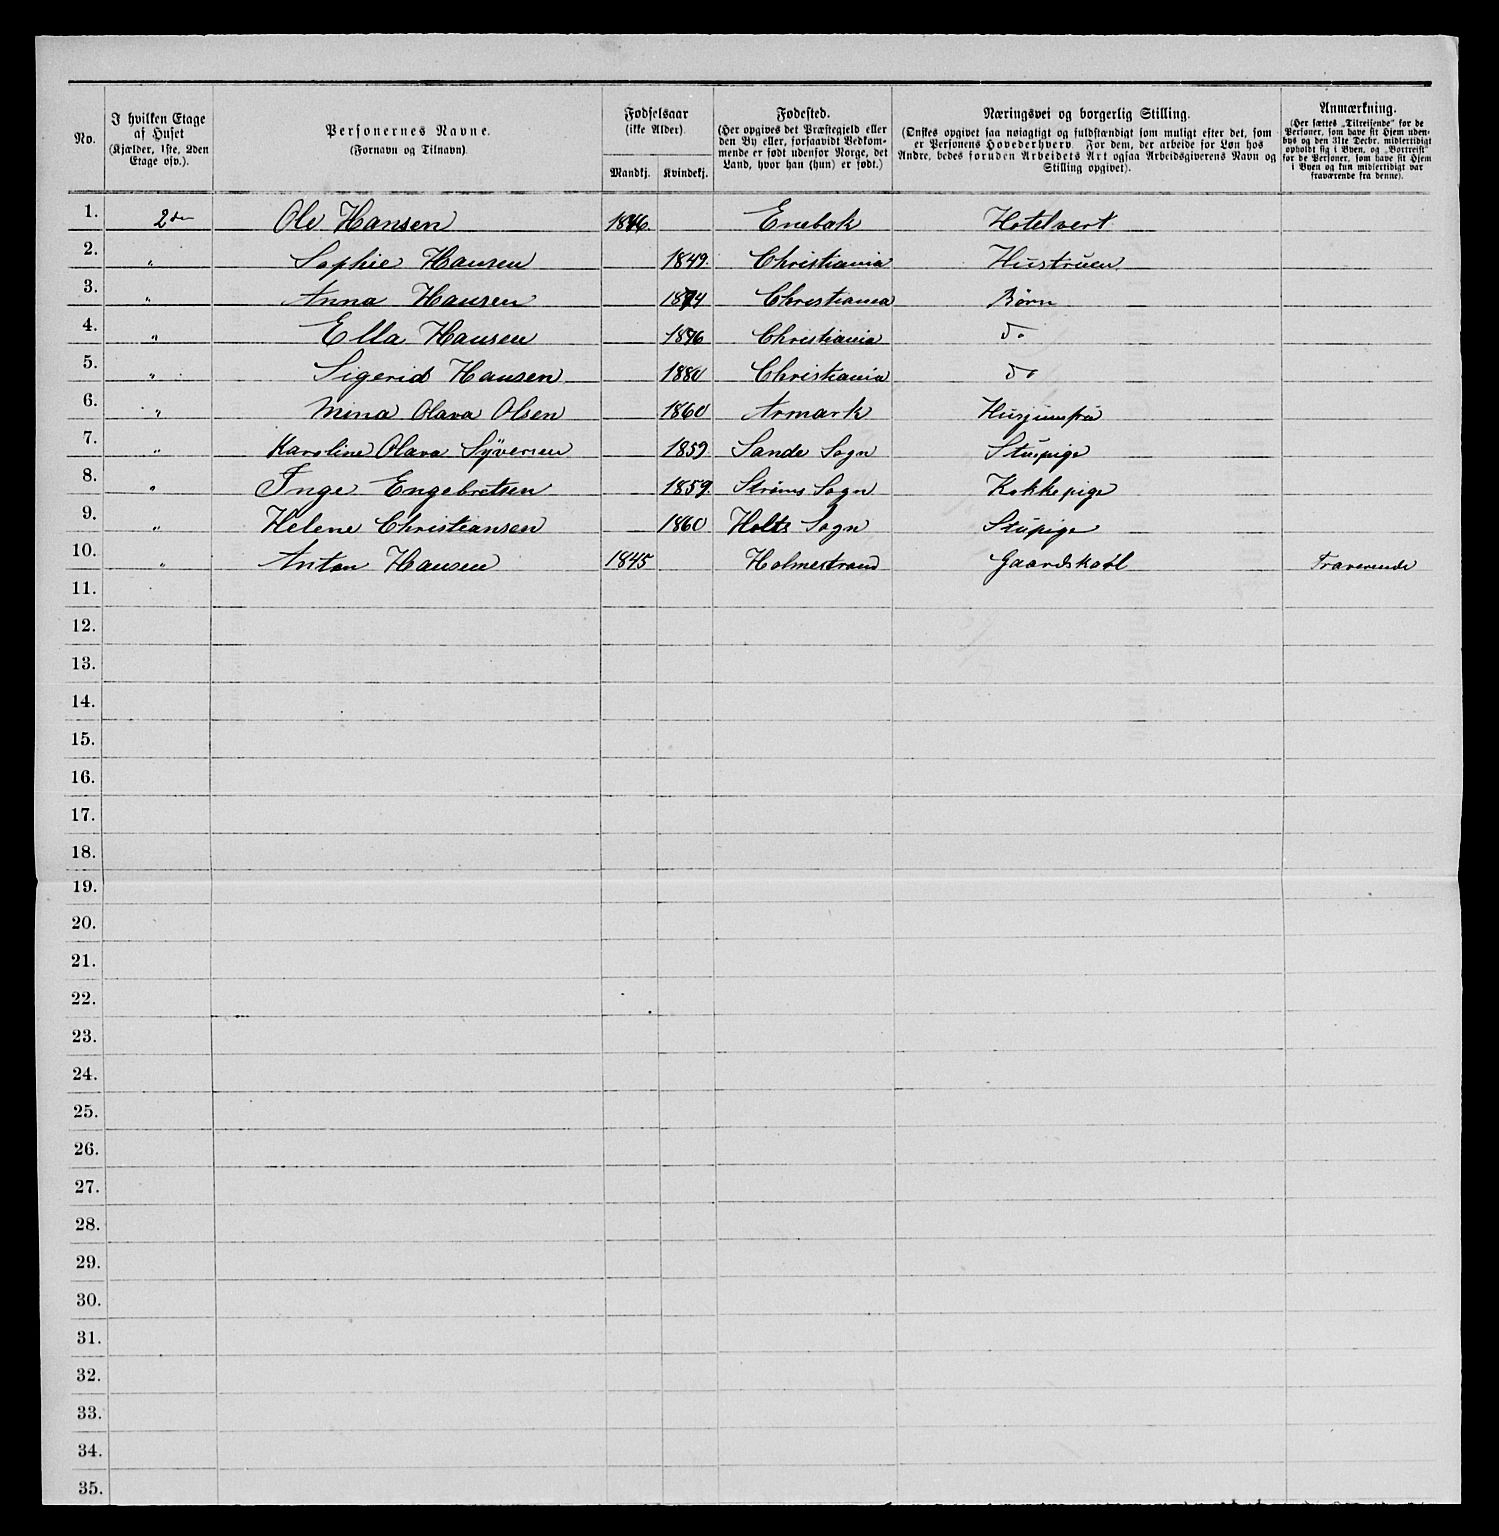 No.
I hvilken Etage
af Huset
(Kjælder, 1ste, 2den
Etage osv.).
Personernes Navne.
(Fornavn og Tilnavn).
Fødselsaar
(ikke Alder).
Mandkj.
Kvindekj.
Fødested.
(Her opgives det Præstegjeld eller
den By eller, forsaavidt Vedkom-
mende er født udenfor Norge, det
Land, hvor han (hun) er født.)
Næringsvei og borgerlig Stilling.
(Ønskes opgivet saa nøiagtigt og fuldstændigt som muligt efter det, som
er Personens Hovederhverv. For dem, der arbeide for Løn hos
Andre, bedes foruden Arbeidets Art ogsaa Arbeidsgiverens Navn og
Stilling opgivet).
Anmærkning.
(Her sættes „Tilreisende“ for de
Personer, som have sit Hjem uden-
bys og den 31te Decbr. midlertidigt
opholdt sig i Byen, og „Bortreist“
for de Personer, som have sit Hjem
i Byen og kun midlertidigt var
fraværende fra denne).
1. 2den Ole Hansen 1846. Enebak Hotelvert
2. " Sophie Hansen 1849. Christiania Hustruen
3. " Anna Hansen 1874 Christiania Børn
4. " Ella Hansen 1876 Christiania do
5. " Sigerid Hansen 1880 Christiania do
6. " Mina Olava Olsen 1860 Armark Husjumfru
7. " Karoline Olava Syversen 1859 Sande Sogn Stuepige
8. " Inge Engebretsen 1859. Strøms Sogn Kokkepige
9. " Helene Christiansen 1860 Holts Sogn Stupige
10. " Anton Hansen 1845 Holmestrand Gaardskarl Fraverende
11.
12.
13.
14.
15.
16.
17.
18.
19.
20.
21.
22.
23.
24.
25.
26.
27.
28.
29.
30.
31.
32.
33.
34.
35.